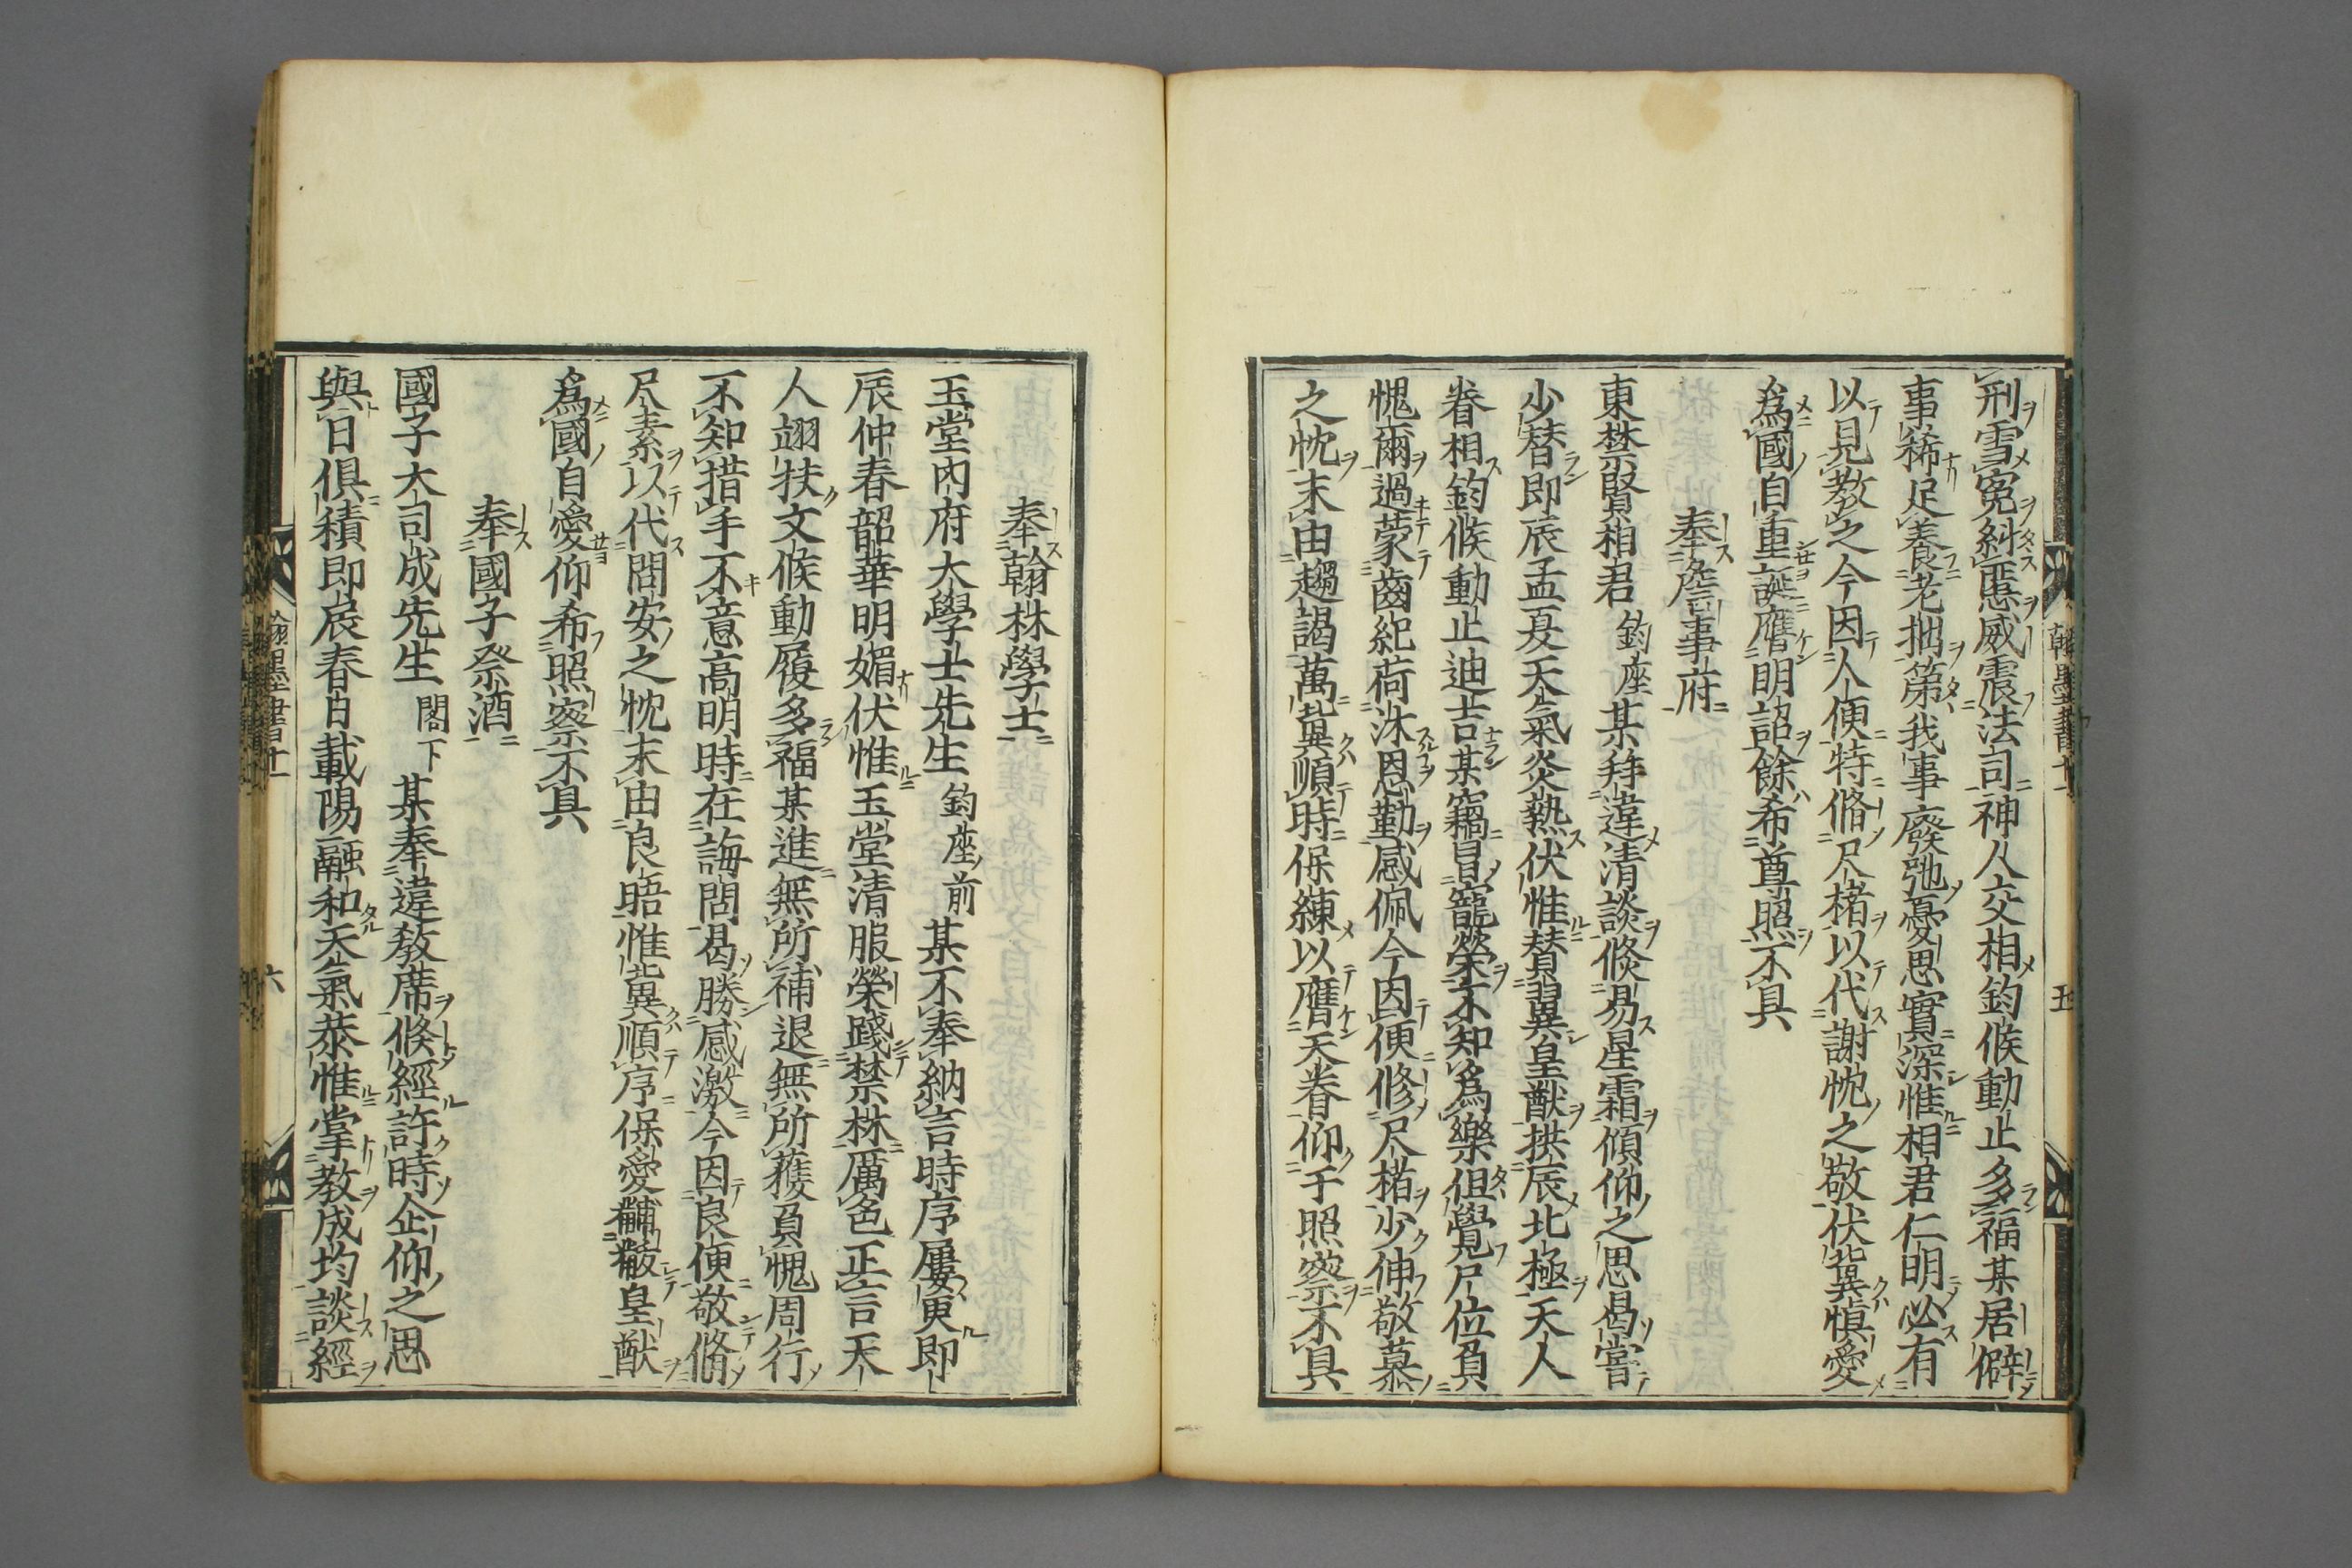 刑雪冤糾慝威震法司神人交相鈞候動止多福某居僻
事稀足養老拙第我事廢弛憂思實深惟相君仁明必有
以見教之今因人便特脩尺楮以代謝忱之敬伏冀慎愛
爲國自重誕膺明詔餘希尊照不具
奉詹事府
東禁賢相君鈞座某拜違清談倏易星霜傾仰之思曷嘗
少替即辰孟夏天氣炎熱伏惟賛翼皇猷拱辰北極天人
眷相鈞候動止迪吉某竊冒寵榮不知爲樂但覺尸位負
愧爾過蒙齒紀荷沐恩勤感佩今因便修尺楮少伸敬慕
之忱末由趨謁萬冀順時保練以膺天眷仰于照察不具
奉翰林學士
玉堂內府大學士先生鈞座前某不奉納言時序屢更即
辰仲春韶華明媚伏惟玉堂清服榮踐禁林厲色正言天
人翊扶文候動履多福某進無所補退無所獲負愧周行
不知措手不意高明時在誨問曷勝感激今因良便敬脩
尺素以代問安之忱末由良晤惟冀順序保愛黼黻皇猷
爲國自愛仰希照察不具
奉國子祭酒
國子大司成先生閣下某奉違教席倏經許時企仰之思
與日俱積即辰春日載陽融和天氣恭惟掌教成均談經